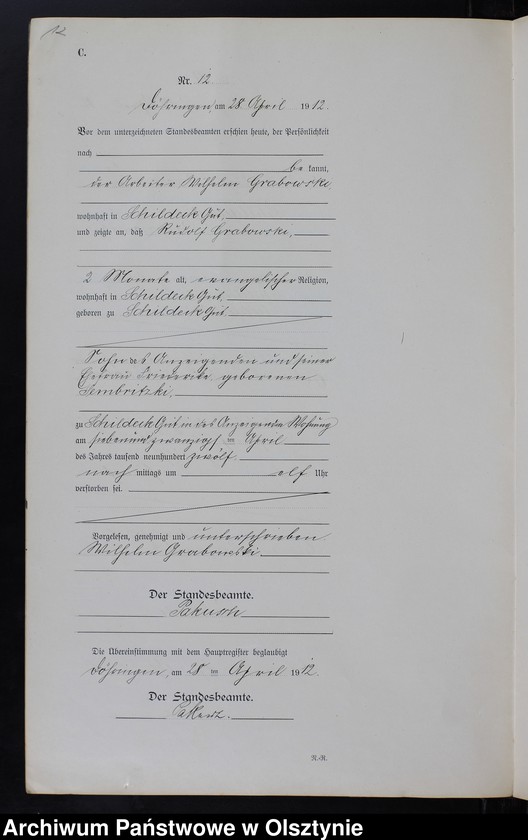 12
C.
Nr. 12.
Döhringen, am 28. April 1912.
Vor dem unterzeichneten Standesbeamten erschien heute, der Persönlichkeit
nach
be kannt,
der Arbeiter Wilhelm Grabowski,
wohnhaft in Schildeck Gut,
und zeigte an, daß Rudolf Grabowski,
2 Monate alt, evangelischer Religion,
wohnhaft in Schildeck Gut,
geboren zu Schildeck Gut
Sohn des Anzeigenden und seiner
Ehefrau geborenen
Sembritzki,
zu Schildeck Gut in des Anzeigenden Wohnung
am siebenundzwanzigsten April
des Jahres tausend neunhundert zwölf
nach mittags um elf Uhr
verstorben sei.
Vorgelesen, genehmigt und unterschrieben
Wilhelm Grabowski
Der Standesbeamte.
Die Übereinstimmung mit dem Hauptregister beglaubigt
Döhringen, am 28 ten April 1912.
Der Standesbeamte.
N.-R.
Archiwum Państwowe w Olsztynie